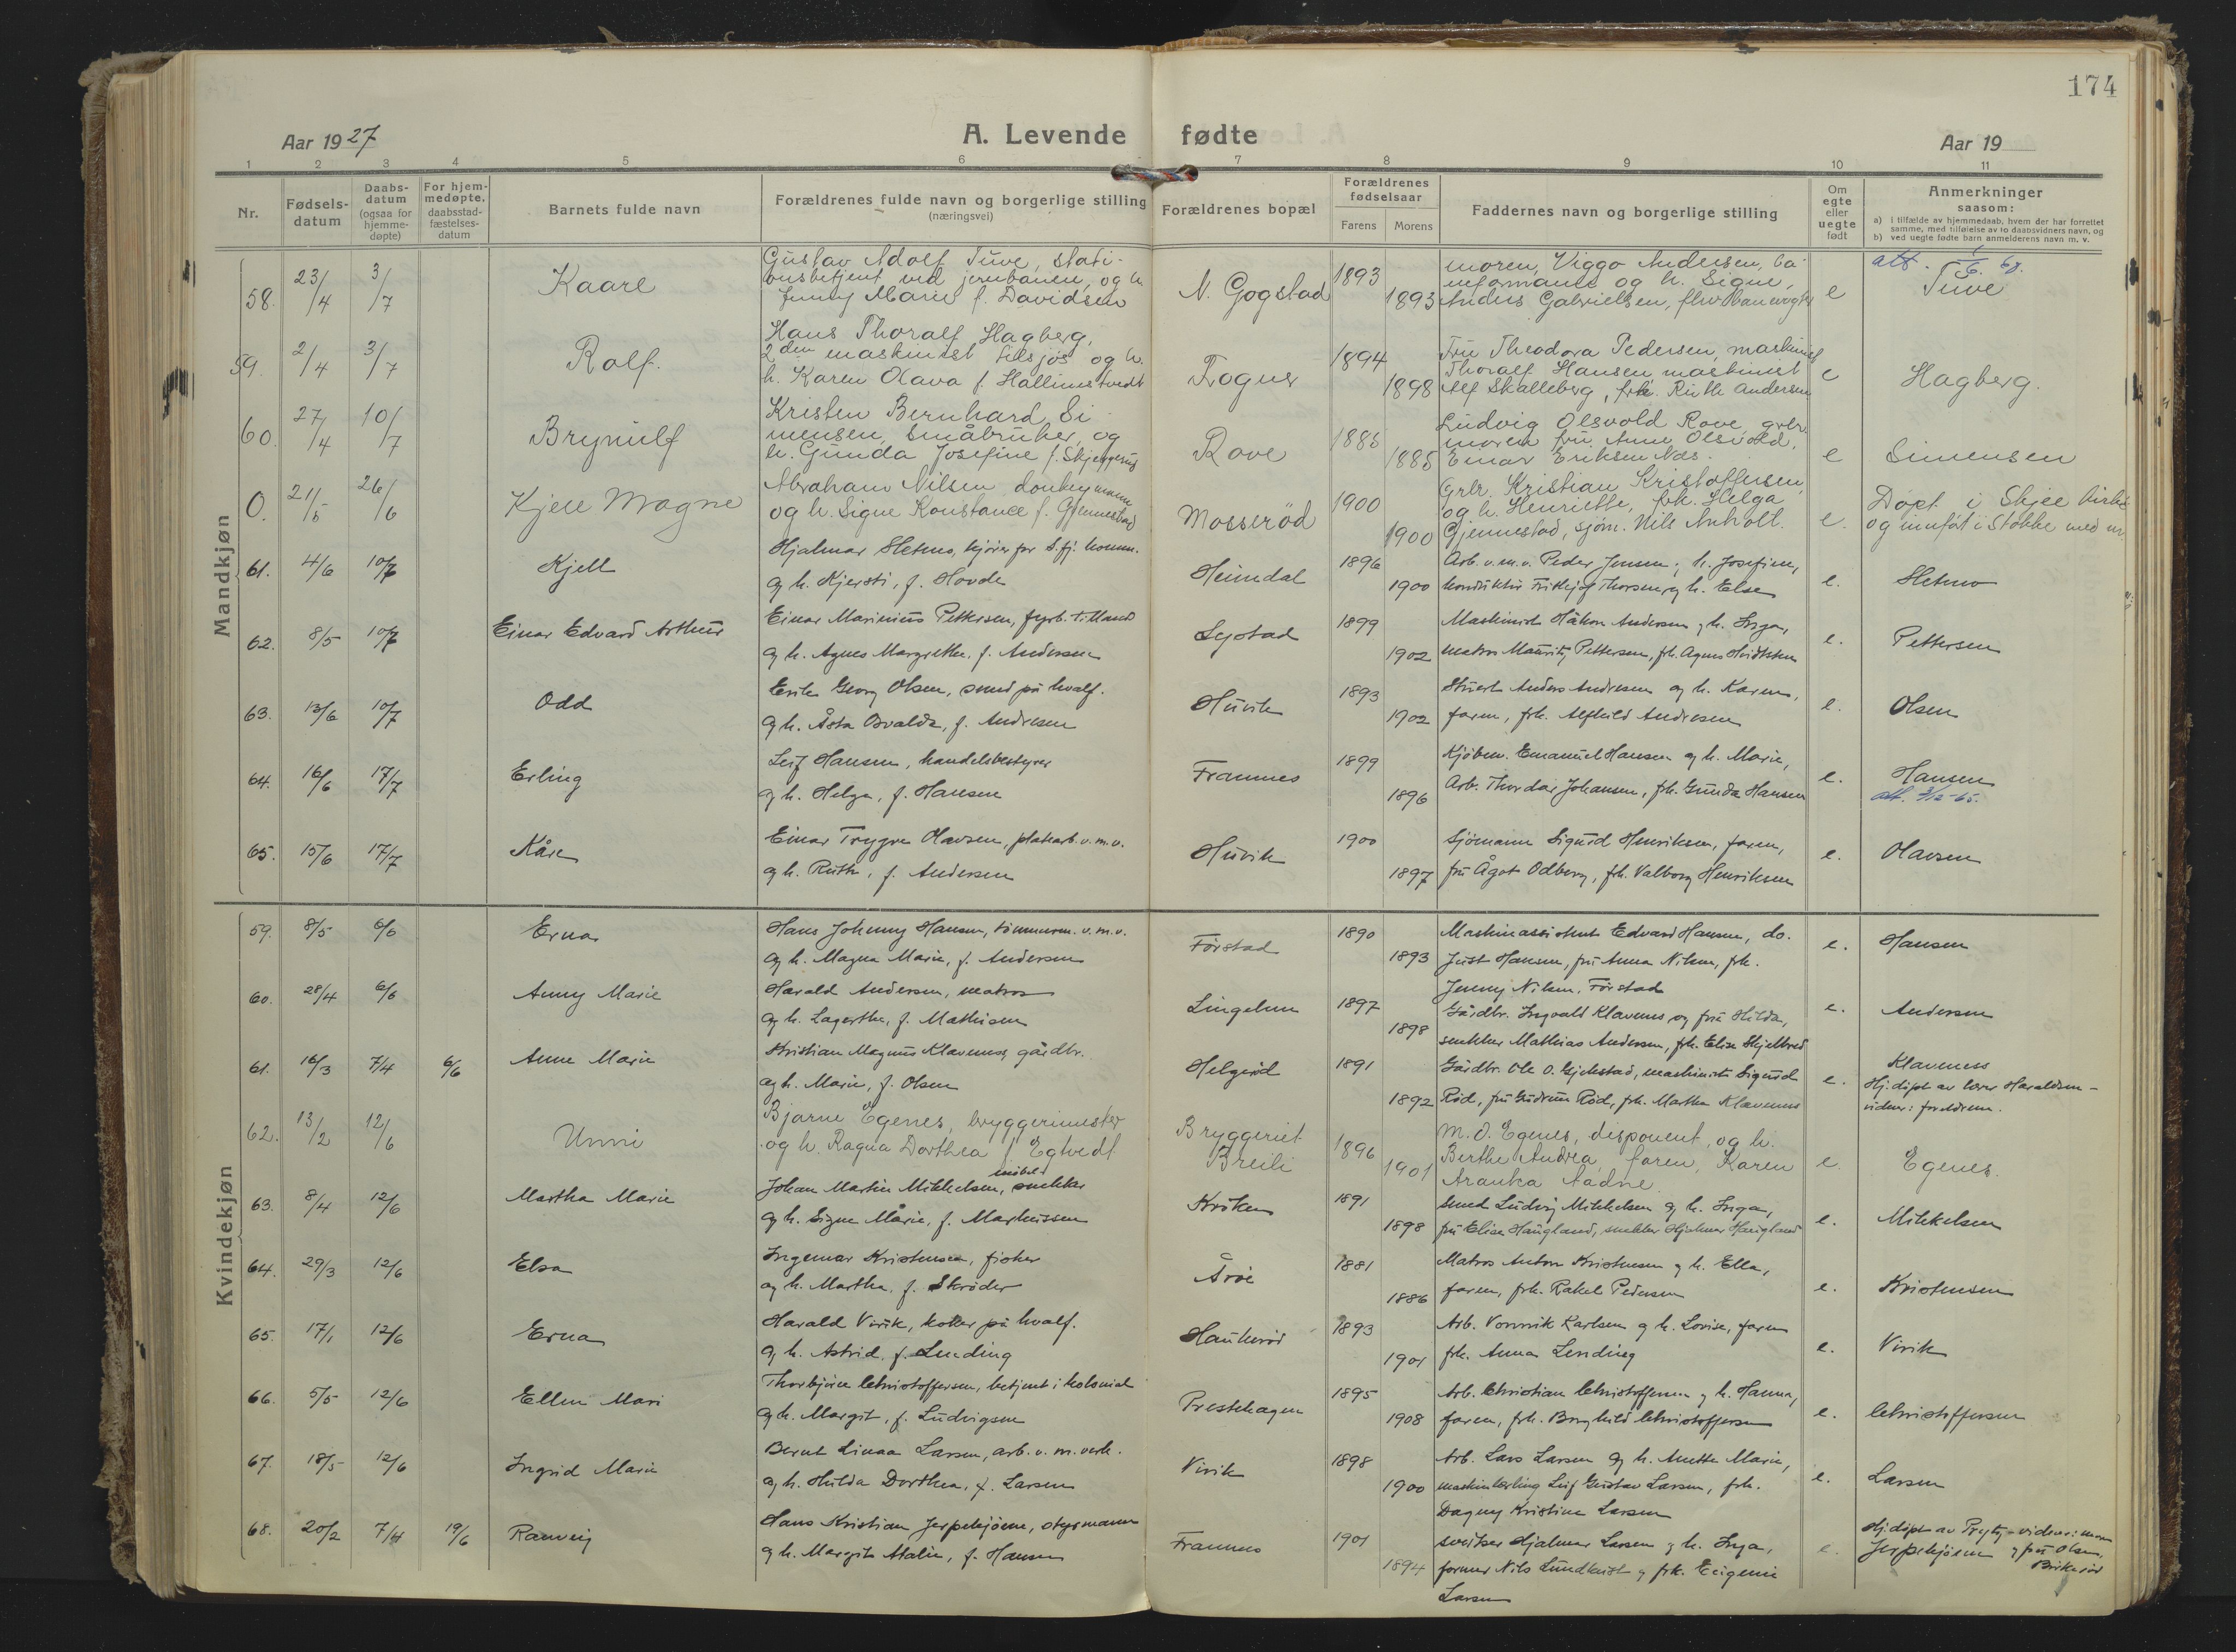 174
Aar 1927
A. Levende fødte
Aar 19
1 2 3 4 5 6 7 8 9 10 11
Nr.
Fødsels-
datum
Daabs-
datum
(ogsaa for
hjemme-
døpte)
For hjem-
medøpte,
daabsstad-
fæstelses-
datum
Barnets fulde navn
Forældrenes fulde navn og borgerlige stilling
(næringsvei)
Forældrenes bopæl
Forældrenes
fødselsaar
Farens Morens
Faddernes navn og borgerlige stilling
Om
egte
eller
uegte
født
Anmerkninger
saasom:
a) i tilfælde av hjemmedaab, hvem der har forrettet
samme, med tilføielse av to daabsvidners navn, og
b) ved uegte fødte barn anmelderens navn m. v.
Mandkjøn
58. 23/4 3/7 Kaare
Gustav Adolf Tuve, stati-
onsbetjent ved jernbanen, og h.
Jenny Marie f. Davidsen
N. Gogstad 1893 1893
moren, Viggo Andersen, ba-
neformand og h. Signe,
Anders Gabrielsen,
e Tuve
59. 2/4 3/7 Rolf.
Hans Thoralf Hagberg,
2den maskinist tilsjøs og h.
h. Karen Olava f. Hallimstvedt
Fogner 1894 1898
Fru Theodora Pedersen, maskinist
Thoralf Hansen maskinist
Alf Skalleberg, frk. Ruth Andersen
e Hagberg.
60. 27/4 10/7 Brynulf
Kristen Bernhard Si-
mensen, småbruker, og
h. Gunda Josefine f. Skjeggerud
Rove 1885 1885
Ludvig Olsvold Rove, grbr.
moren, fru Anne Olsvold,
Einar Eriksen Næs.
e Simensen
0. 21/5 26/6 Kjell Magne
Abraham Nilsen donkeymann
og h. Signe Konstance f. Gjennestad
Mosserød 1900 1900
Grbr. Kristian Kristoffersen,
og h. Henriette, frk. Helga
Gjennestad, sjøm. Nils Anholt.
e. Døpt i Skjee kirke
og innført i Stokke med nr.
61. 4/6 10/7 Kjell
Hjalmar Sletmo, kjører for S.fj. komm.
og h. Kjersti, f. Hovde
Heimdal 1896 1900
Arb. v. m. v. Peder Jensen, h. Josefine,
konduktør Frithjof Thorsen og h. Else
e. Sletmo
62. 8/5 10/7 Einar Edvard Arthur
Einar Marinius Pettersen, fyrb. t. lland
og h. Agnes Margrethe, f. Andersen
Lystad 1899 1902
Maskinist Håkon Andersen og h. Inga,
matros Mauritz Pettersen, frk. Agnes
e. Pettersen
63. 13/6 10/7 Odd
Erik Georg Olsen, smed på hvalf.
og h. Åsta Osvalda, f. Andresen
Huvik 1893 1902
Stuert Anders Andresen og h. Karen,
faren, frk. Alfhild Andresen
e. Olsen
64. 16/6 17/7 Erling
Leif Hansen, handelsbestyrer
og h. Helga, f. Hansen
Framnes 1899 1896
Kjøbm. Emanuel Hansen og h. Marie,
Arb. Thordar Johansen, frk. Gunda Hansen
e. Hansen
att. 3/12-65.
65. 15/6 17/7 Kåre
Einar Trygve Olavsen, platearb. v. m. v.
og h. Ruth, f. Andersen
Huvik 1900 1897
Sjømann Sigurd Henriksen, faren,
fru Ågot Odberg, frk. Valborg Henriksen
e. Olavsen
Kvindekjøn
59. 8/5 6/6 Erna
Hans Johnny Hansen, tømmerm. v. m. v.
og h. Magna Marie, f. Andersen
Førstad 1890 1893
Maskinassistent Edvard Hansen, do.
Just Hansen, fru Anna Nilsen, frk.
Jenny Nilsen, Førstad
e. Hansen
60. 28/4 6/6 Anny Marie
Harald Andersen, matros
og h. Lagertha, f. Mathisen
Lingelem 1897 1898
Gårdbr. Ingvald Klavenes og fru Hilda,
snekker Mathias Andersen, frk. Elise Skjelbred
e. Andersen
61. 16/3 7/4 6/6 Anne Marie
Kristian Magnus Klaveness, gårdbr.
og h. Marie, f. Olsen
Helgerød 1891 1892
Gårdbr. Ole O. Gjekstad, maskinist Sigurd
Rød, fru Gudrun Rød, frk. Martha Klavenes
e. Klaveness
Hj.døpt av lærer Haraldsen -
vidner: foreldrene.
62. 13/2 12/6 Unni
Bjarne Egenes, bryggerimester
og h. Ragna Dorthea f. Egtvedt
Bryggeriet
Breili
1896 1901
M. O. Egenes, disponent, og h.
Berthe Andrea, faren, Karen
Aranka Aadne.
e. Egenes.
63. 8/4 12/6 Martha Marie
Johan Martin Mikkelsen, møbelsnekker
og h. Signe Marie, f. Markussen
Kroken 1891 1898
Smed Ludvig Mikkelsen og h. Inga,
fru Elise Haugland, snekker Hjalmar Haugland
e. Mikkelsen
64. 29/3 12/6 Elsa
Ingemar Kristensen, fisker
og h. Martha, f. Skrøder
Årøe 1881 1886
Matros Anton Kristensen og h. Ella,
faren, frk. Rakel Pedersen
e. Kristensen
65. 17/1 12/6 Erna
Harald Virik, koker på hvalf.
og h. Astrid, f. Lending
Haukerød 1893 1901
Arb. Vonnik Karlsen og h. Lovise, faren
frk. Anna Lending
e. Virik
66. 5/5 12/6 Ellen Mari
Thorbjørn Christoffersen, betjent i kolonial
og h. Margit, f. Ludvigsen
Prestehagen 1895 1908
Arb. Christian Christoffersen og h. Hanna,
faren, frk. Borghild Christoffersen
e. Christoffersen
67. 18/5 12/6 Ingrid Marie
Bernt Linaa Larsen, arb. v. m. verk.
og h. Hilda Dorthea, f. Larsen
Virik 1898 1900
Arb. Lars Larsen og h. Anette Marie,
maskinlærling Leif Gustav Larsen, frk.
Dagny Kristine Larsen
e. Larsen
68. 20/2 7/4 19/6 Ranveig
Hans Kristian Jerpekjøenn, styrmann
og h. Margit Atalie, f. Hansen
Framnes 1901 1894
sveitser Hjalmar Larsen og h. Inga,
former Nils Lundkvist og frk. Eugenie
Larsen
e. Hj.døpt av Prytz - vidner: moren
Jerpekjøenn og fru Olsen,